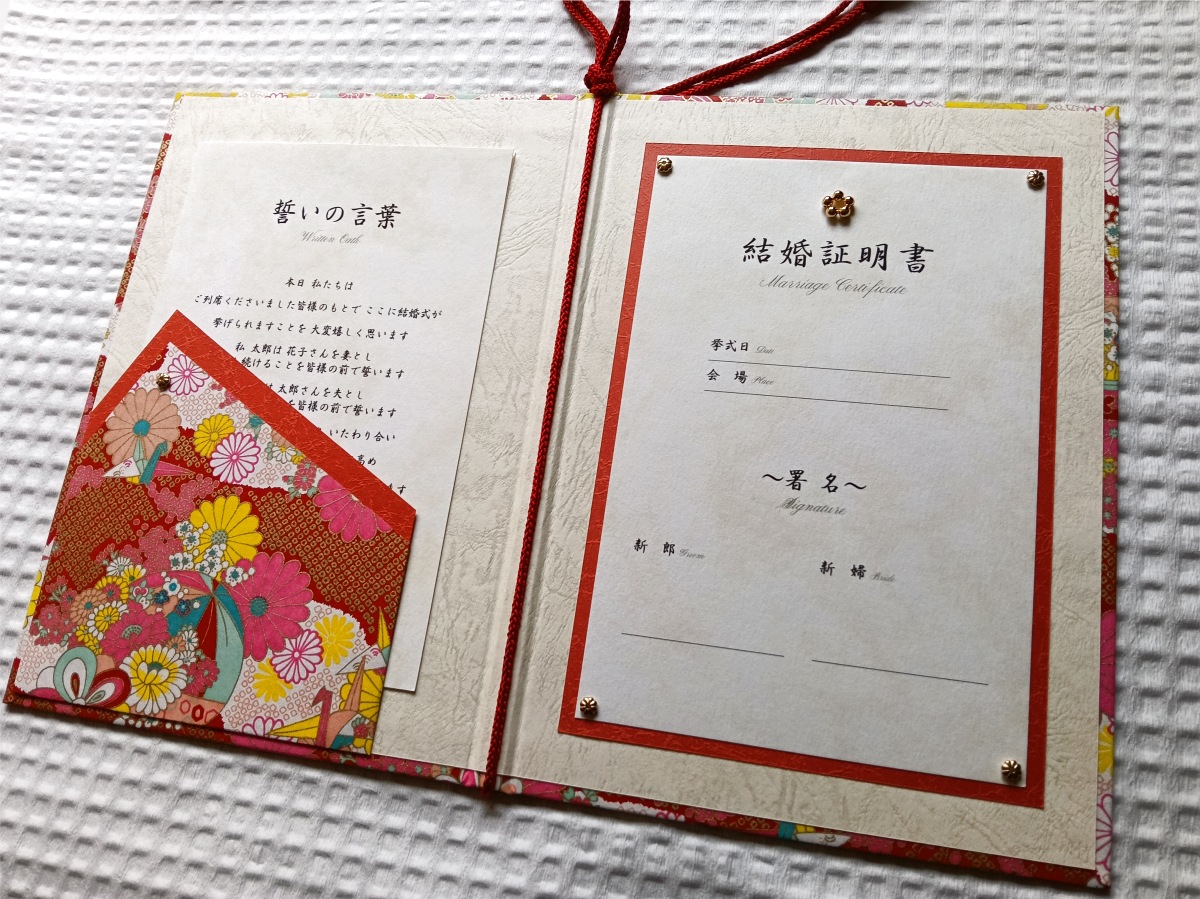 誓いの言葉
Written Oath
本日 私たちは
ご列席くださいました皆様のもとで ここに結婚式が
挙げられますことを 大変嬉しく思います
私 太郎は 花子さんを妻とし
続けることを皆様の前で誓います
太郎さんを夫とし
皆様の前で誓います
いたわり合い
高め
ます
結婚証明書
Marriage Certificate
挙式日 Date
会 場 Place
〜署 名〜
Signature
新 郎 Groom
新 婦 Bride